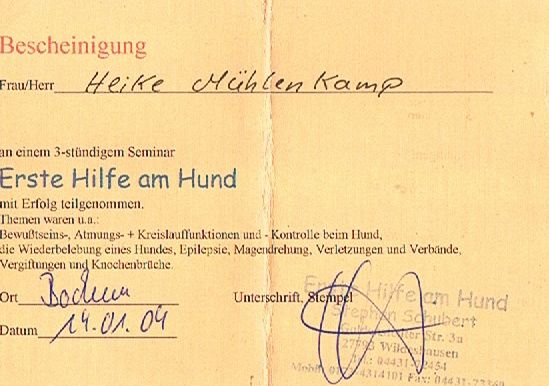 Bescheinigung
Frau/Herr Heike Mühlenkamp
an einem 3-stündigem Seminar
Erste Hilfe am Hund
mit Erfolg teilgenommen.
Themen waren u.a.:
Bewußtseins-, Atmungs- + Kreislauffunktionen und - Kontrolle beim Hund,
die Wiederbelebung eines Hundes, Epilepsie, Magendrehung, Verletzungen und Verbände,
Vergiftungen und Knochenbrüche.
Ort Bochum
Unterschrift, Stempel
Datum 14.01.04
Erste Hilfe am Hund
Stephan Schubert
Str. 3a
27793 Wildeshausen
Tel.: 04431-
Mobil: Fax: 04431-